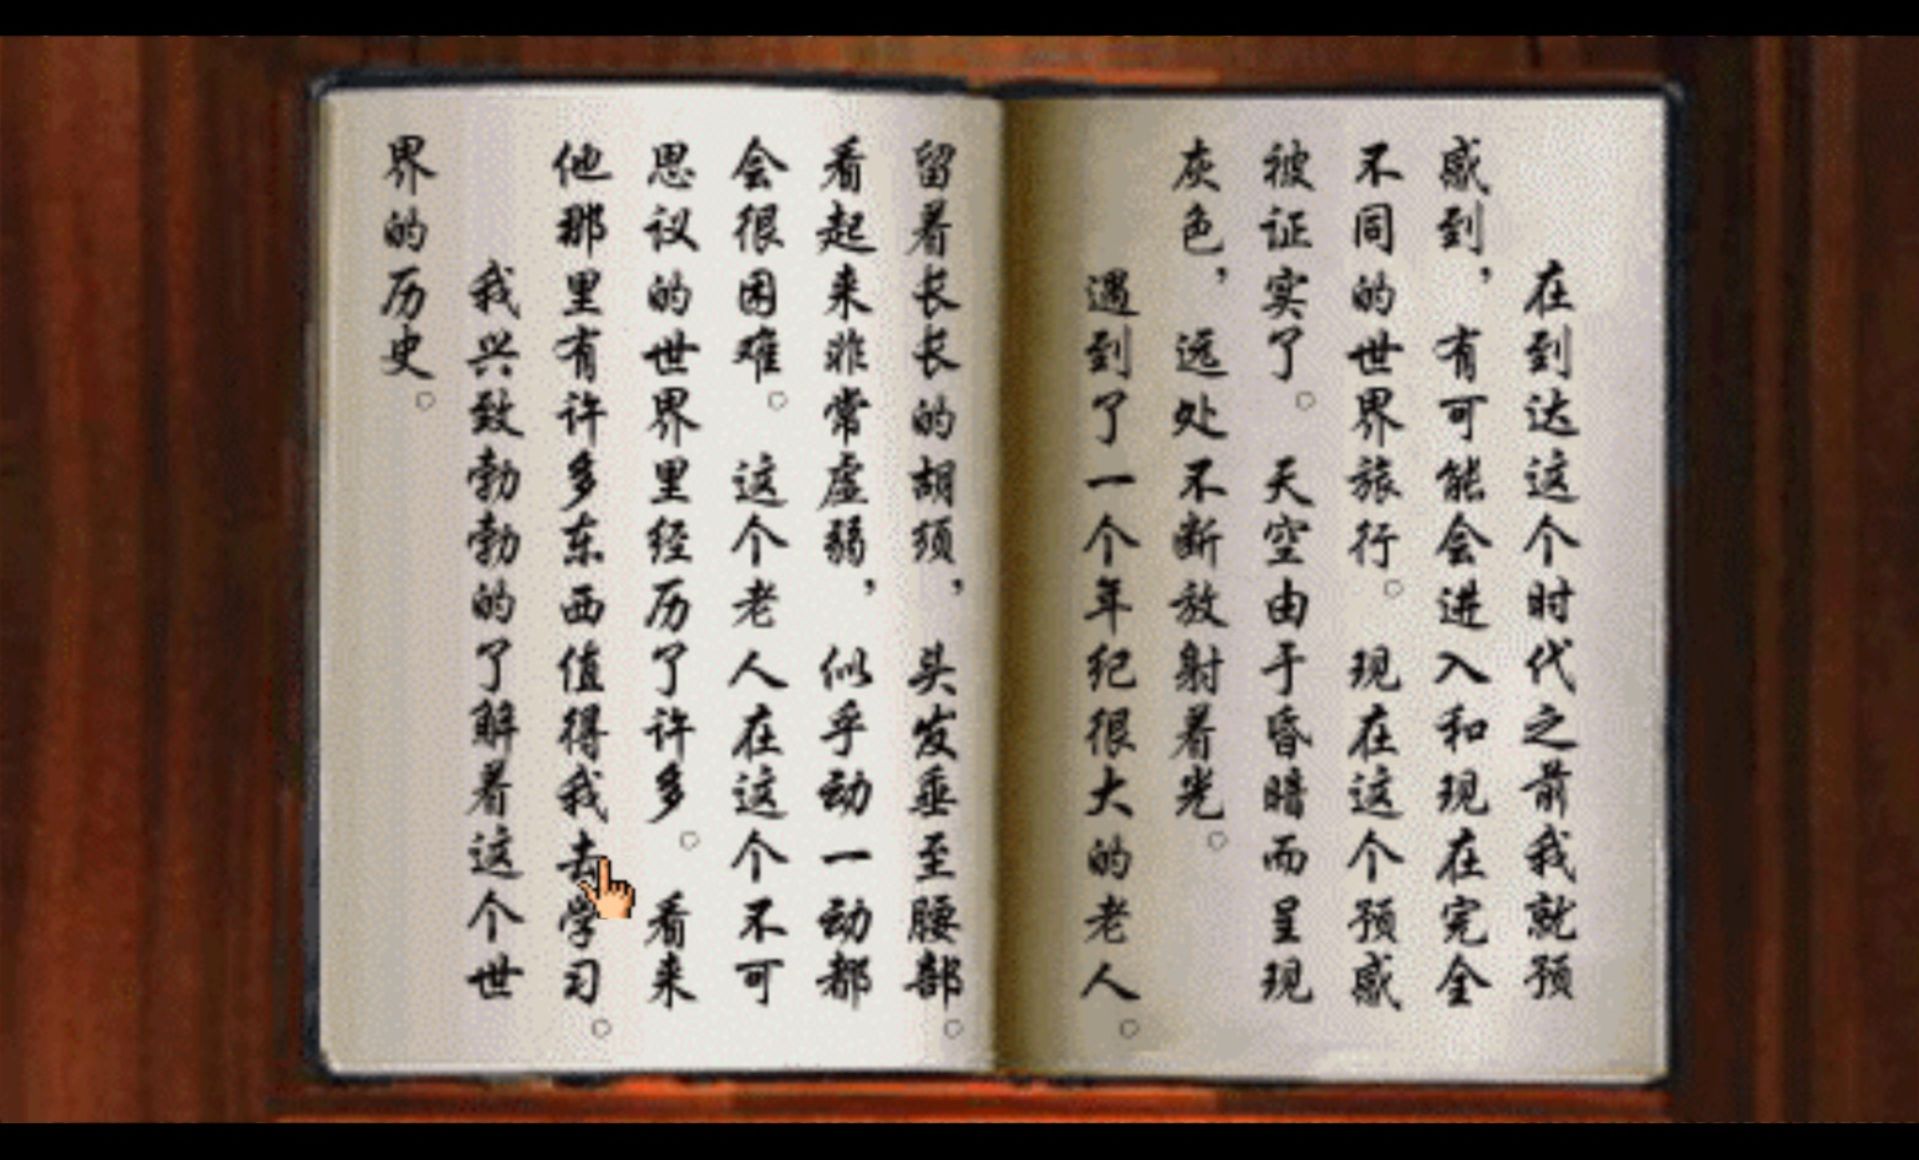 在到达这个时代之前我就预
感到，有可能会进入和现在完全
不同的世界旅行。现在这个预感
被证实了。天空由于昏暗而呈现
灰色，远处不断放射着光。
遇到了一个年纪很大的老人。
留着长长的胡须，头发垂至腰部。
看起来非常虚弱，似乎动一动都
会很困难。这个老人在这个不可
思议的世界里经历了许多。看来
他那里有许多东西值得我去学习。
我兴致勃勃的了解着这个世
界的历史。